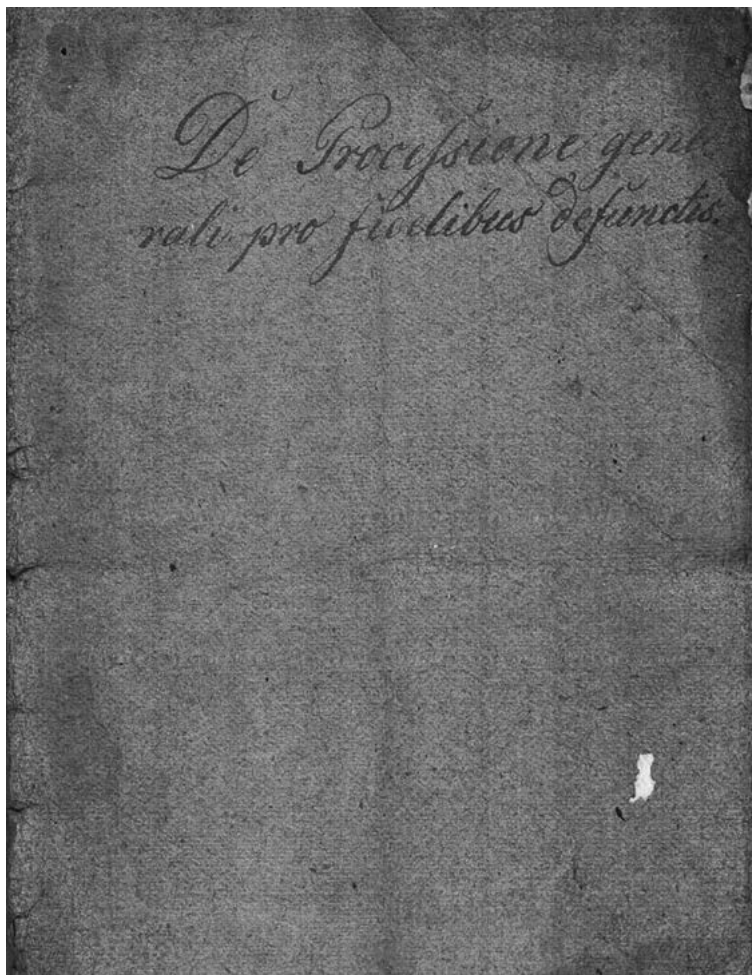 De Processione gene
rali pro fidelibus defunctis.